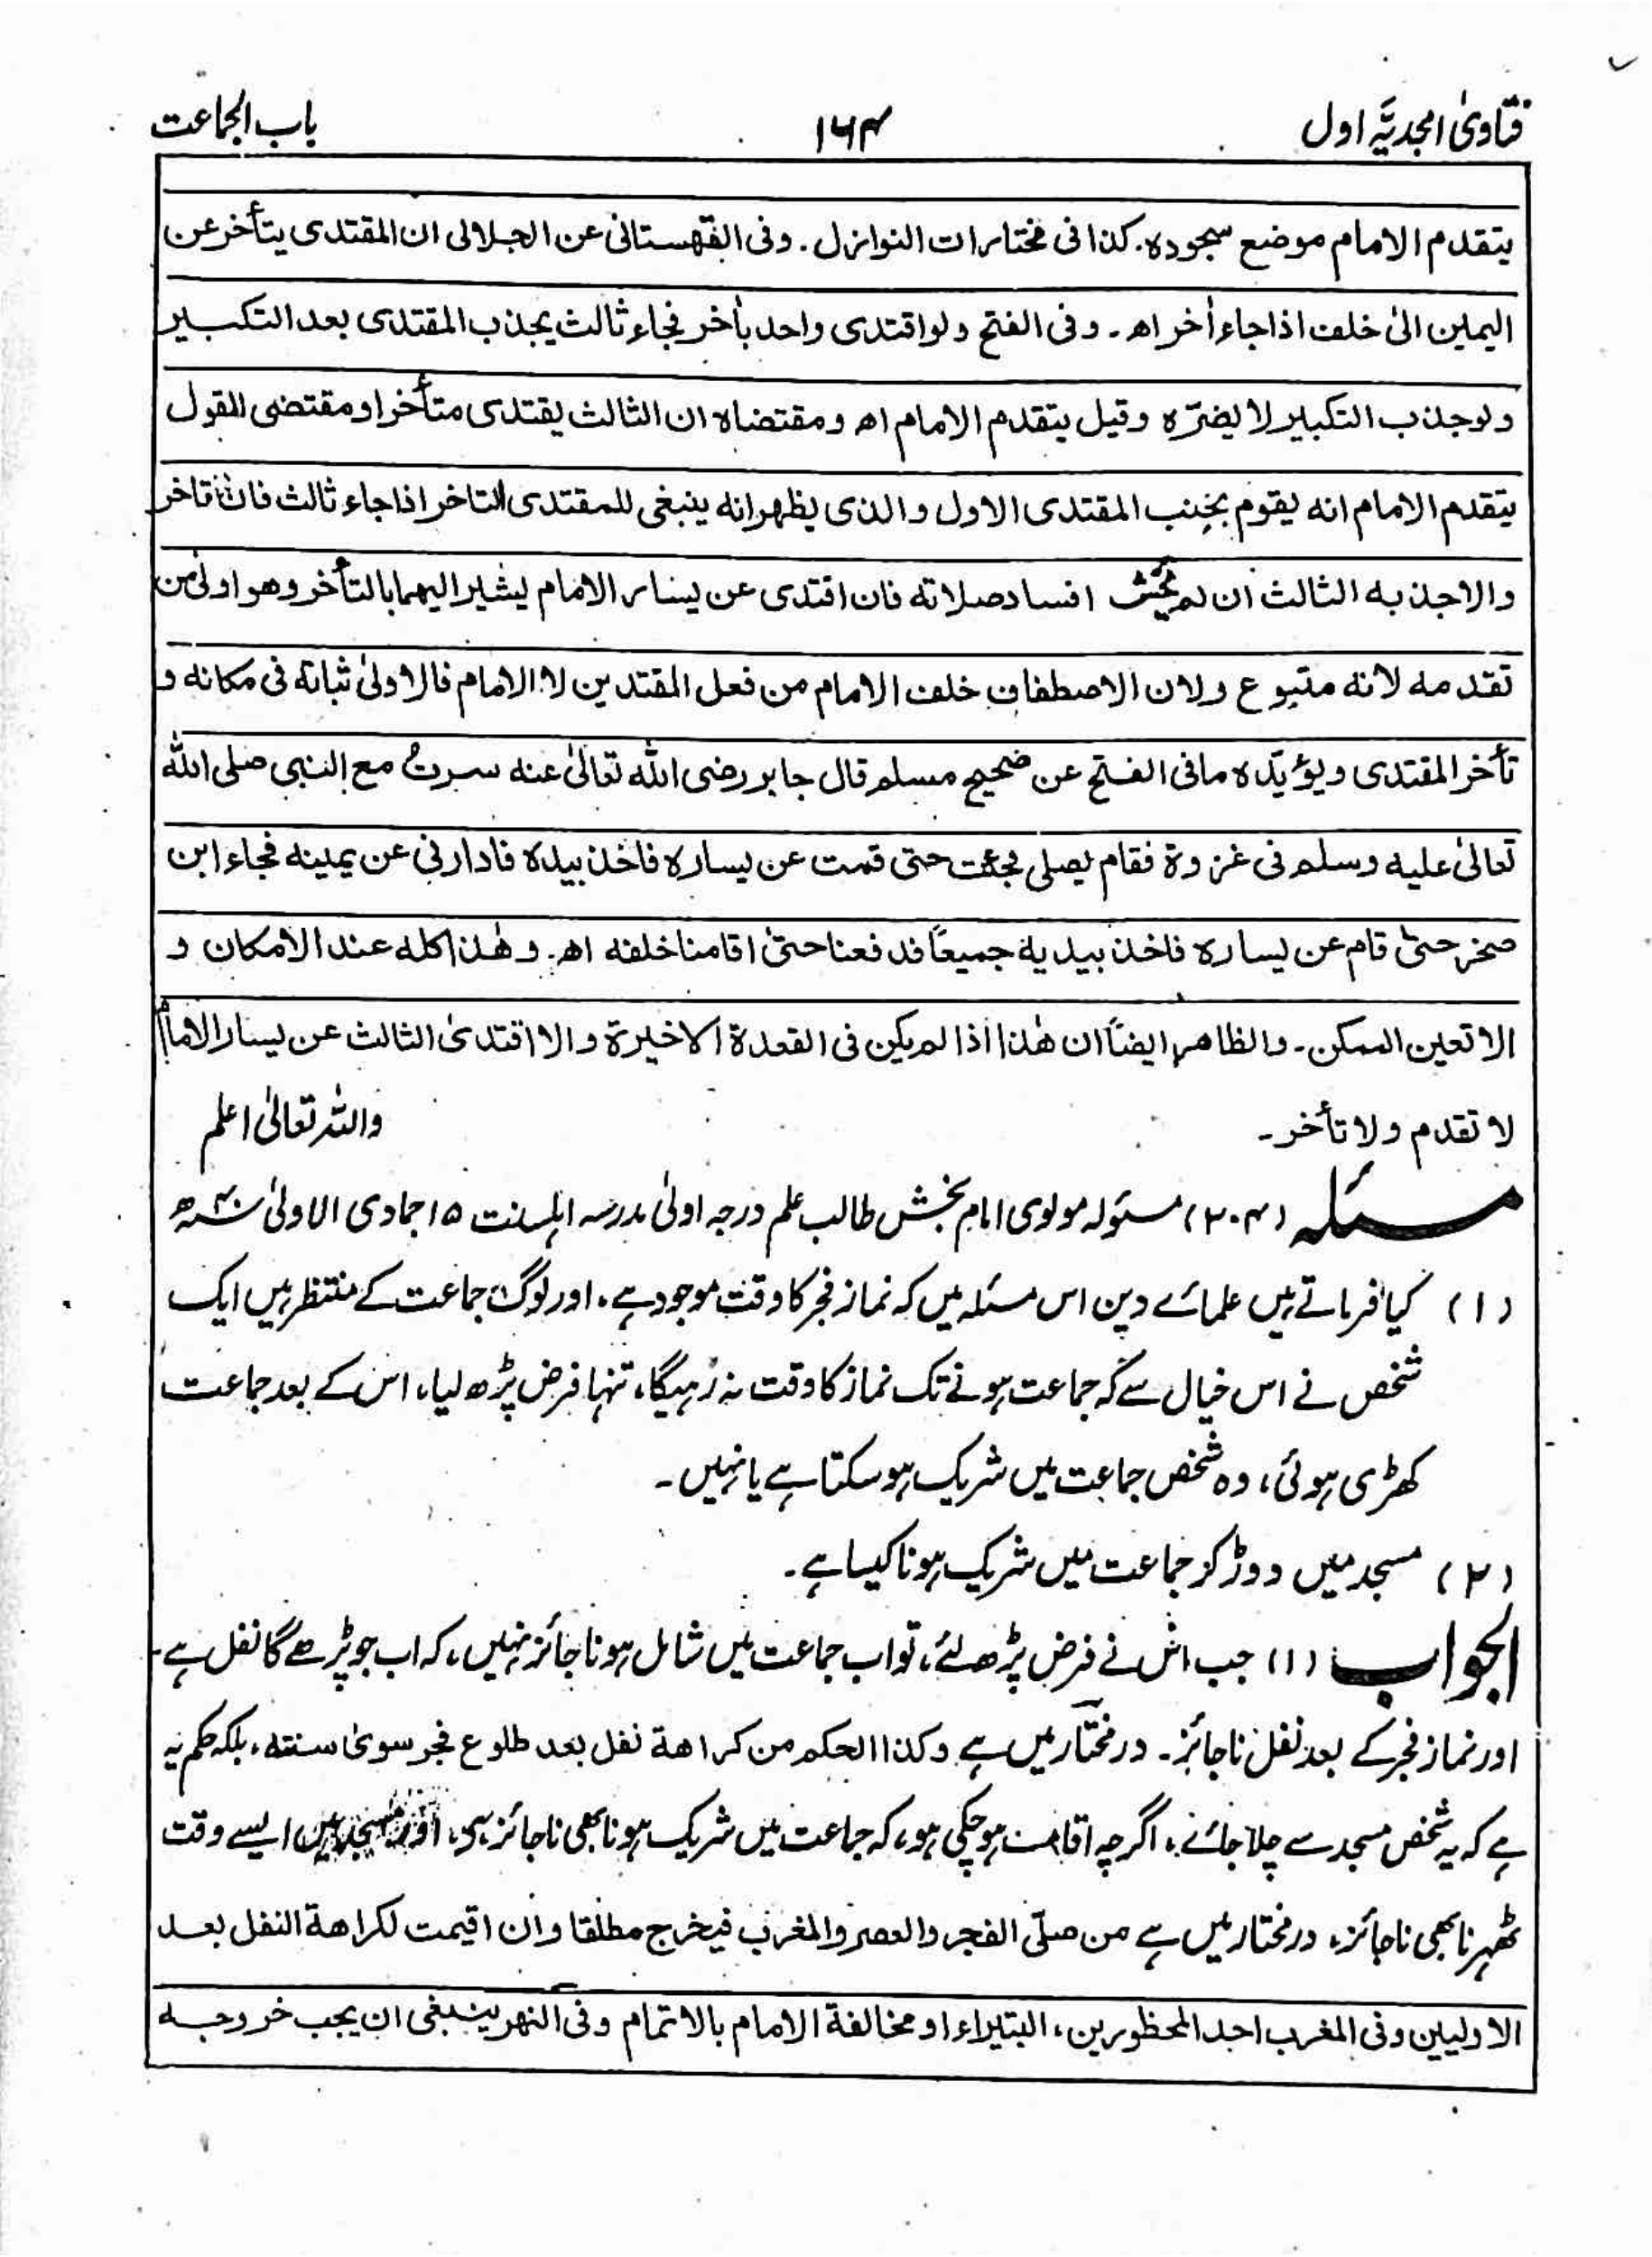 فتاویٰ امجدیَّہ اول
۱۶۴
باب الجماعت
یتقدم الامام موضع سجودہ۔ کذا فی مختارات النوازل۔ وفی القھستانی عن الجلالی ان المقتدی یتأخر عن
الیمین الیٰ خلف اذا جاء أخر اھ۔ وفی الفتح ولو اقتدی واحد بأخر فجاء ثالث یجذب المقتدی بعد التکبیر
ولو جذب التکبیر لا یضرّہ وقیل یتقدم الامام اھ ومقتضاہ ان الثالث یقتدی متأخرا ومقتضی القول
یتقدم الامام انہ یقوم بجنب المقتدی الاول والذی یظھر انہ ینبغی للمقتدی التاخر اذا جاء ثالث فان تاخر
والا جذبہ الثالث ان لم یخش افساد صلاتہ فان اقتدی عن یسار الامام یشیر الیھما بالتأخر وھو اولیٰ من
تقدمہ لانہ متبوع ولان الاصطفاف خلف الامام من فعل المقتدین لا الامام فالاولیٰ ثباتہ فی مکانہ و
تأخر المقتدی ویؤیّدہ مافی الفتح عن صحیح مسلم قال جابر رضی اللہ تعالیٰ عنہ سرتُ مع النبی صلی اللہ
تعالیٰ علیہ وسلم فی غزوۃ فقام یصلی فجئت حتی قمت عن یسارہ فاخذ بیدہ فادارنی عن یمینہ فجاء ابن
صخر حتیٰ قام عن یسارہ فاخذ بیدیہ جمیعًا فدفعنا حتیٰ اقامنا خلفہ اھ۔ وھٰذا کلہ عند الامکان و
الا تعین الممکن۔ والظاھر ایضًا ان ھٰذا اذا لم یکن فی القعدۃ الاخیرۃ والا اقتدیٰ الثالث عن یسار الامام
لا تقدم ولا تأخر۔ واللہ تعالیٰ اعلم
مسئلہ (۲۰۴) مسئولہ مولوی امام بخش طالب علم درجہ اولیٰ مدرسہ اہلسنت ۱۵ جمادی الاولیٰ ۴۰ھ
(۱) کیا فرماتے ہیں علمائے دین اس مسئلہ میں کہ نماز فجر کا وقت موجود ہے، اور لوگ جماعت کے منتظر ہیں ایک
شخص نے اس خیال سے کہ جماعت ہونے تک نماز کا وقت نہ رہیگا، تنہا فرض پڑھ لیا، اس کے بعد جماعت
کھڑی ہوئی، وہ شخص جماعت میں شریک ہو سکتا ہے یا نہیں۔
(۲) مسجد میں دوڑ کر جماعت میں شریک ہونا کیسا ہے۔
الجواب (۱) جب اس نے فرض پڑھ لئے، تو اب جماعت میں شامل ہونا جائز نہیں، کہ اب جو پڑھے گا نفل ہے۔
اور نماز فجر کے بعد نفل ناجائز۔ درمختار میں ہے وکذا الحکم من کراھۃ نفل بعد طلوع فجر سویٰ سنتہ، بلکہ حکم یہ
ہے کہ یہ شخص مسجد سے چلا جائے، اگرچہ اقامت ہو چکی ہو، کہ جماعت میں شریک ہونا بھی ناجائز ہے، اور مسجد میں ایسے وقت
ٹھہرنا بھی ناجائز، درمختار میں ہے من صلّی الفجر والعصر والمغرب فیخرج مطلقا وان اقیمت لکراھۃ النفل بعد
الاولیین وفی المغرب احد المحظورین، البتیراء او مخالفۃ الامام بالاتمام وفی النھر ینبغی ان یجب خروجہ